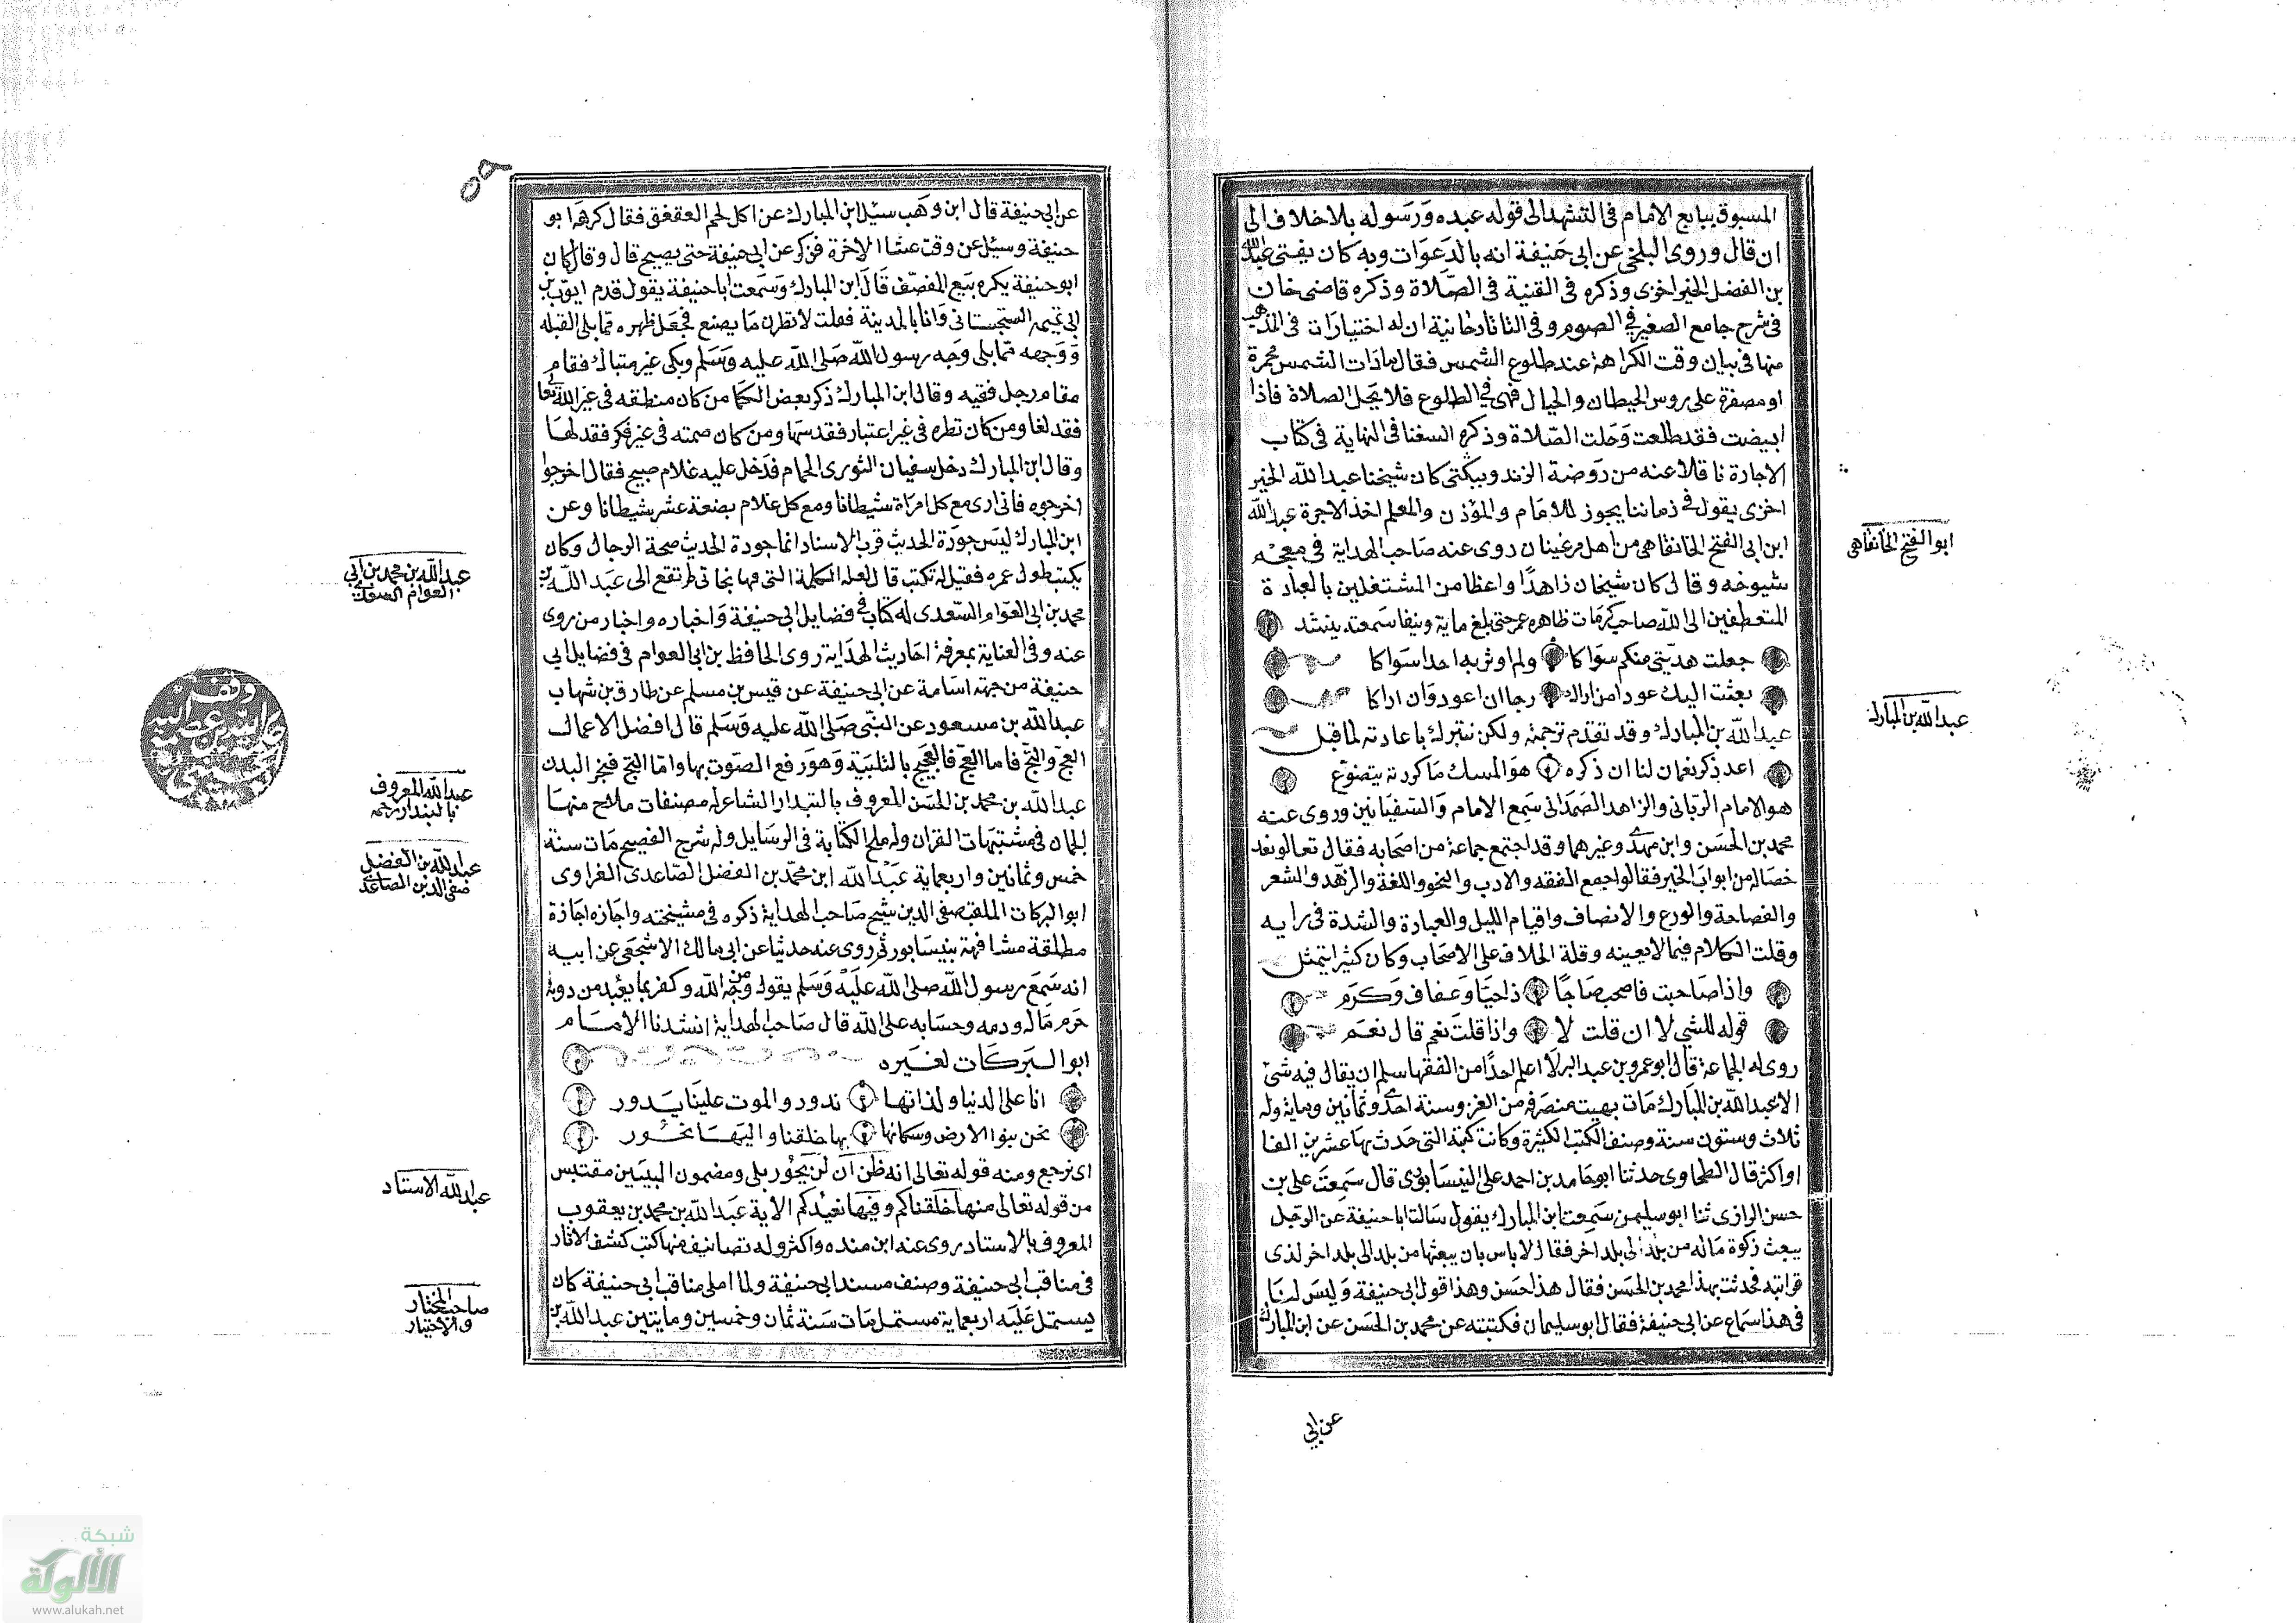 المسبوق يتابع الامام في التشهد الى قوله عبده ورسوله بلاخلاف الى
ان قال وروى البلخي عن ابي حنيفة انه بالدعوات وبه كان يفتي عبد الله
بن الفضل الخيراخزى وذكره في القنية في الصلاة وذكره قاضى خان
في شرح جامع الصغير في الصوم وفي التاتارخانية ان له اختيارات في المذهب
منها في بيان وقت الكراهة عند طلوع الشمس فقال مادات الشمس محمرة
او مصفرة على روس الحيطان والجبال فهى في الطلوع فلا يحل الصلاة فاذا
ابيضت فقد طلعت وحلت الصلاة وذكره السغنا في النهاية في كتاب
الاجارة ناقلا عنه من روضة الزندويبكتى كان شيخنا عبد الله الخير
اخزى يقول في زماننا يجوز للامام والمؤذن والمعلم اخذ الاجرة عبد الله
ابن ابي الفتح الخانقاهى من اهل مرغينان روى عنه صاحب الهداية في معجم
شيوخه وقال كان شيخان زاهدًا واعظا من المشتغلين بالعبادة
المتعطفين الى الله صاحب كرمات ظاهره عمر حتى بلغ ماية ونيفا سمعته ينشد
جعلت هديتى منكم سواكا ولم اوثر به احدا سواكا
بعثت اليك عودا من اراك رجا ان اعود وان اراكا
عبد الله بن المبارك وقد تقدم ترجمته ولكن نتبرك باعادته لما قيل
اعد ذكر نعمان لنا ان ذكره هو المسك ما كررته يتضوع
هو الامام الربانى والزاهد الصمدانى سمع الامام والسفيانين وروى عنه
محمد بن الحسن وابن مهدى وغيرهما وقد اجتمع جماعة من اصحابه فقال تعالو نعد
خصاله من ابواب الخير فقالوا جمع الفقه والادب والنحو واللغة والزهد والشعر
والفصاحة والورع والانصاف واقيام الليل والعبادة والشدة في رايه
وقلت الكلام فيما لا يعينه وقلة الخلاف على الاصحاب وكان كثيرا يتمثل
واذا صاحبت فاصحب صاحبًا ذا حيا وعفاف وكرم
قوله للشي لا ان قلت لا واذا قلت نعم قال نعم
روى له الجماعة قال ابو عمرو بن عبد البر لا اعلم احدًا من الفقها سلم ان يقال فيه شئ
الا عبد الله بن المبارك مات بهيت منصرفه من الغزو سنة احدى وثمانين وماية وله
ثلاث وستون سنة وصنف الكتب الكثيرة وكانت كتبه التى حدث بها عشرين الفا
او اكثر قال الطحاوى حدثنا ابو حامد بن احمد على النيسابورى قال سمعت على بن
حسن الرازى ثنا ابو سليمن سمعت ابن المبارك يقول سالت ابا حنيفة عن الرجل
يبعث زكوة ماله من بلد الى بلد اخر فقال لا باس بان يبعثها من بلد الى بلد اخر لذى
قرابته فحدثت بهذا محمد بن الحسن فقال هذا حسن وهذا قول ابى حنيفة وليس لنا
في هذا سماع عن ابى حنيفة فقال ابو سليمان فكتبته عن محمد بن الحسن عن ابن المبارك
عن ابي
ابو الفتح الخانقاهى
عبد الله بن المبارك
٥٩
عن ابي حنيفة قال ابن وهب سئل ابن المبارك عن اكل لحم العقعق فقال كرهه ابو
حنيفة وسئل عن وقت عشا الاخرة فذكر عن ابى حنيفة حتى يصبح قال وقال كان
ابو حنيفة يكره بيع المفصف قال ابن المبارك وسمعت ابا حنيفة يقول قدم ايوب بن
ابى تميمه السجستانى وانا بالمدينة فقلت لانظرن ما يصنع فجعل ظهره مما يلى القبله
ووجهه مما يلى وجه رسول الله صلى الله عليه وسلم وبكى غير متباك فقام
مقام رجل فقيه وقال ابن المبارك ذكر بعض الحكما من كان منطقه في غير الله تعالى
فقد لغا ومن كان نظره في غير اعتبار فقد سها ومن كان صمته في غير فكر فقد لها
وقال ابن المبارك دخل سفيان الثورى الحمام فدخل عليه غلام صبيح فقال اخرجوا
اخرجوه فانى ارى مع كل امراة شيطانا ومع كل غلام بضعة عشر شيطانا وعن
ابن المبارك ليس جودة الحديث قرب الاسناد انما جودة الحديث صحة الرجال وكان
يكتب طول عمره فقيل له تكتب قال لعله الكلمة التى فيها نجاتى لم تقع الى عبد الله بن
محمد بن ابى العوام السعدى له كتاب في فضايل ابى حنيفة واخباره واخبار من روى
عنه وفي العناية بمعرفة احاديث الهداية روى الحافظ بن ابى العوام في فضايل ابى
حنيفة من جهة اسامة عن ابى حنيفة عن قيس بن مسلم عن طارق بن شهاب
عبد الله بن مسعود عن النبى صلى الله عليه وسلم قال افضل الاعمال
العج والثج فاما العج فالعجيج بالتلبية وهو رفع الصوت بها واما الثج فنجر البدن
عبد الله بن محمد بن الحسن المعروف بالبندار الشاعر له مصنفات ملاح منها
الجمان في مشتبهات القران وله ملح الكتابة في الرسايل وله شرح الفصيح مات سنة
خمس وثمانين واربعماية عبد الله ابن محمد بن الفضل الصاعدى الفراوى
ابو البركات الملقب صفى الدين شيخ صاحب الهداية ذكره في مشيخته واجازه اجازة
مطلقة مشافهة بنيسابور ثم روى عنه حدثنا عن ابى مالك الاشجعى عن ابيه
انه سمع رسول الله صلى الله عليه وسلم يقول من وحد الله وكفر بما يعبد من دونه
حرم ماله ودمه وحسابه على الله قال صاحب الهداية انشدنا الامام
ابو البركات لغيره
انا على الدنيا ولذاتها ندور والموت علينا يدور
نحن بنو الارض وسكانها بها خلقنا واليها نحور
اى نرجع ومنه قوله تعالى انه ظن ان لن يحور بلى ومضمون البيتين مقتبس
من قوله تعالى منها خلقناكم وفيها نعيدكم الاية عبد الله بن محمد بن يعقوب
المعروف بالاستاد روى عنه ابن منده واكثر وله تصانيف منها كتب كشف الاثار
في مناقب ابى حنيفة وصنف مسند ابى حنيفة ولما املى مناقب ابى حنيفة كان
يستمل عليه اربعماية مستمل مات سنة ثمان وخمسين ومايتين عبد الله بن
عبد الله بن محمد بن ابي
العوام السعدى
عبد الله المعروف
بالبندار
عبد الله بن الفضل
صفى الدين الصاعدى
عبد الله الاستاد
صاحب المختار
والاختيار
شبكة
الألوكة
www.alukah.net